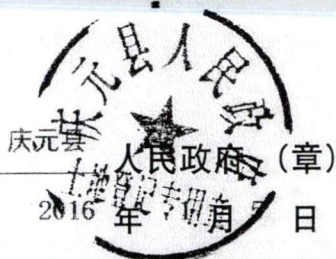 庆元县人民政府
庆元县 人民政府（章）
土地登记专用章
2016 年 月 日